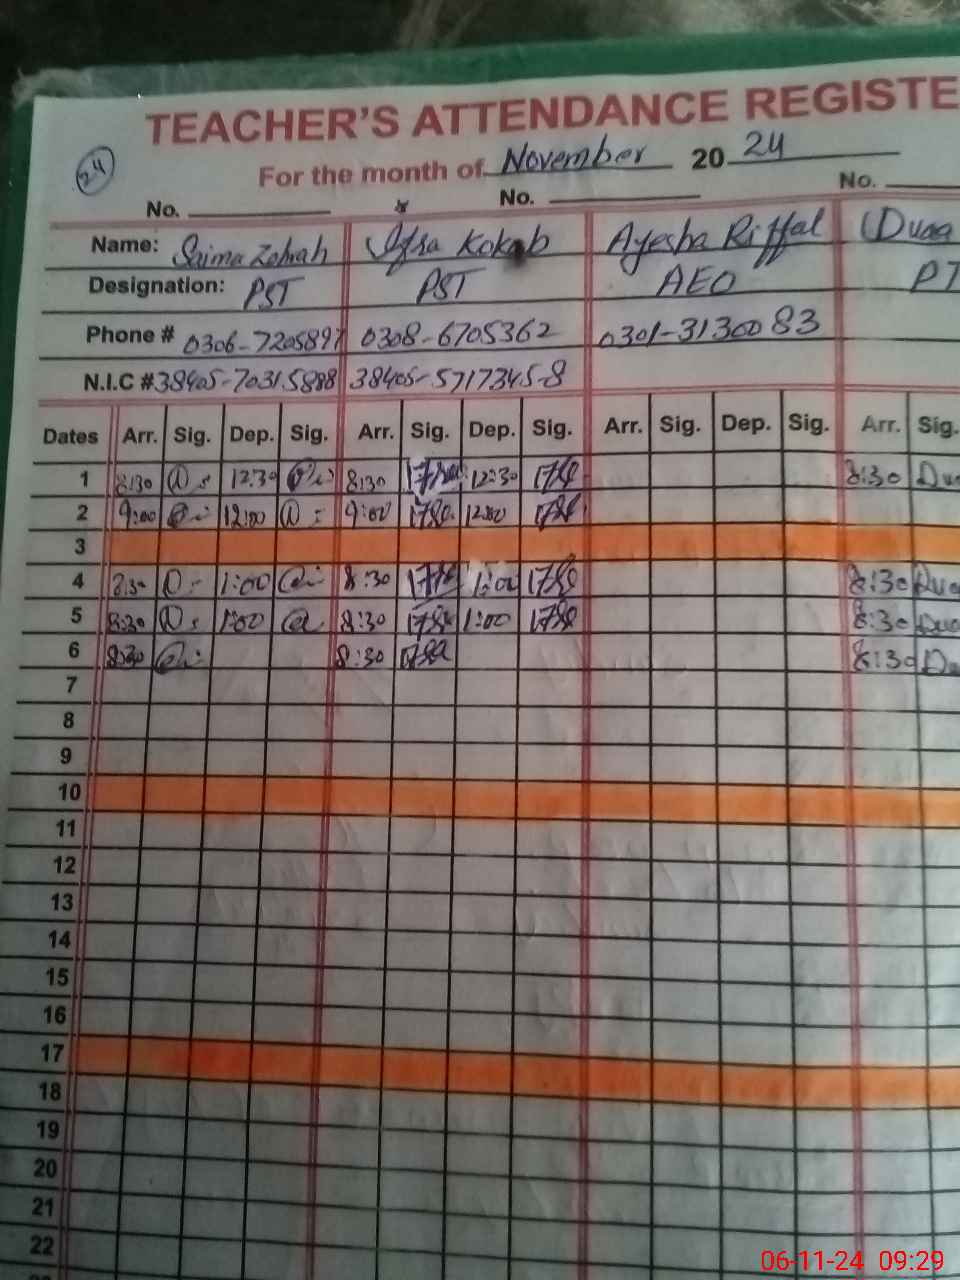 TEACHER'S ATTENDANCE REGISTE
24
For the month of November 20 24
No. No. No.
Name: Saima Zahrah Ifra Kokab Ayesha Riffal Duaa
Designation: PST PST AEO PT
Phone # 0306-7205897 0308-6705362 0301-3130083
N.I.C # 38405-70315888 38405-5717345-8
Dates Arr. Sig. Dep. Sig. Arr. Sig. Dep. Sig. Arr. Sig. Dep. Sig. Arr. Sig.
1 8:30 12:30 8:30 12:30 8:30 Dua
2 9:00 12:00 9:00 12:00
3
4 8:30 1:00 8:30 1:00 8:30 Dua
5 8:30 1:00 8:30 1:00 8:30 Dua
6 8:30 8:30 8:30 Du
7
8
9
10
11
12
13
14
15
16
17
18
19
20
21
22
06-11-24 09:29